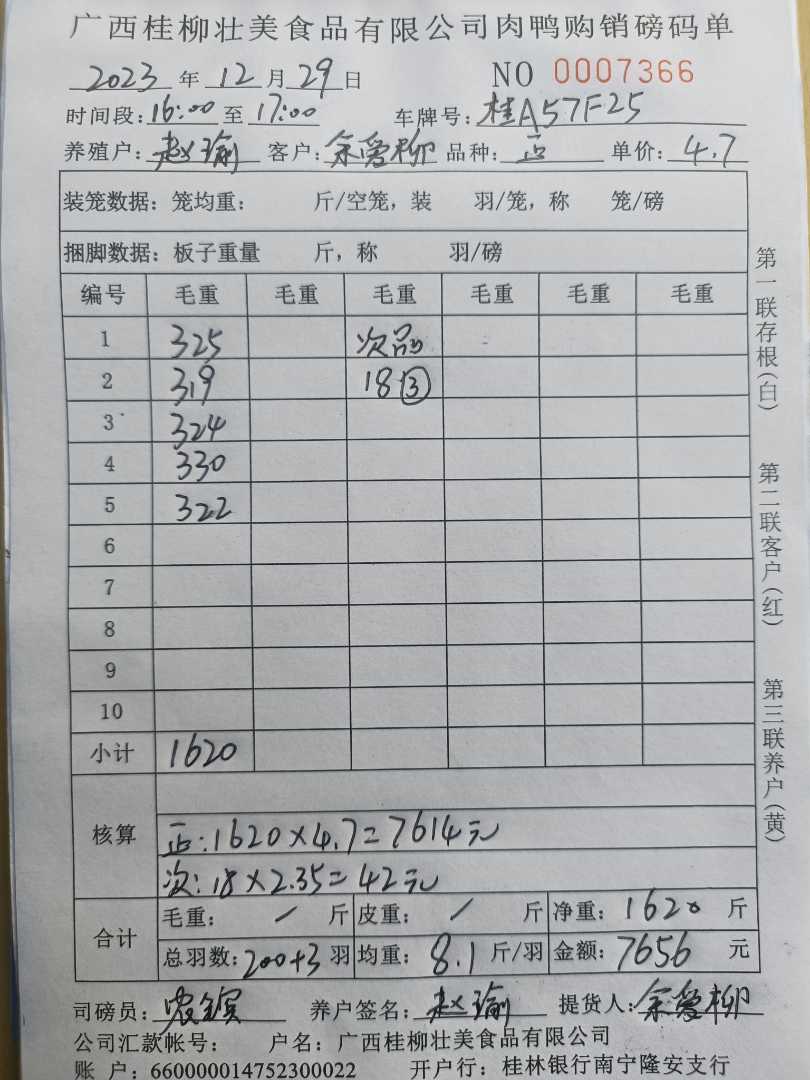 广西桂柳壮美食品有限公司肉鸭购销磅码单
2023年12月29日 NO 0007366
时间段:16:00至17:00 车牌号:桂A57F25
养殖户:赵瑜 客户:余爱柳 品种:正 单价:4.7
装笼数据:笼均重: 斤/空笼,装 羽/笼,称 笼/磅
捆脚数据:板子重量 斤,称 羽/磅
编号 毛重 毛重 毛重 毛重 毛重 毛重
1 325 次品
2 319 18③
3 324
4 330
5 322
6
7
8
9
10
小计 1620
核算
正:1620×4.7=7614元
次:18×2.35=42元
合计
毛重: / 斤 皮重: / 斤 净重:1620 斤
总羽数:200+3羽 均重:8.1斤/羽 金额:7656元
司磅员: 养户签名:赵瑜 提货人:余爱柳
公司汇款帐号: 户名:广西桂柳壮美食品有限公司
账 户:660000014752300022 开户行:桂林银行南宁隆安支行
第一联存根(白)
第二联客户(红)
第三联养户(黄)